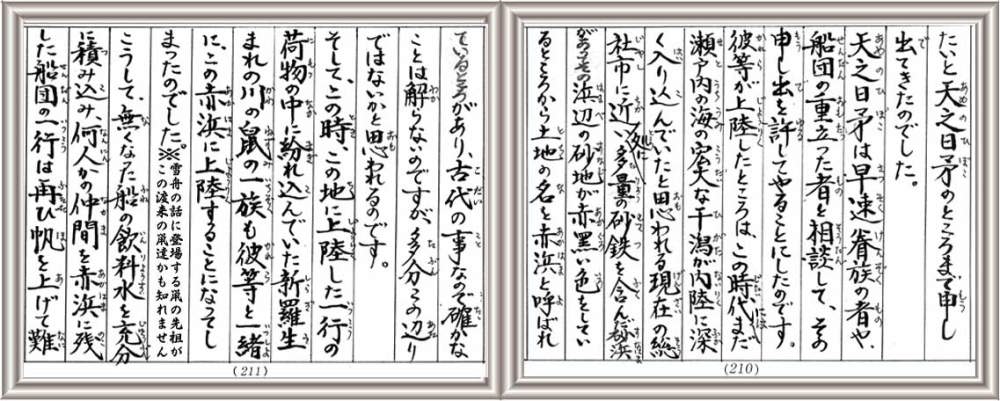 たいと天之日矛のところまで申し
出てきたのでした。
天之日矛は早速眷族の者や、
船団の重立った者と相談して、その
申し出を許してやることにしたのです。
彼等が上陸したところは、この時代まだ
瀬戸内の海の広大な干潟が内陸に深
く入り込んでいたと思われる現在の総
社市に近い処に多量の砂鉄を含んだ砂浜
があってその浜辺の砂地が赤黒い色をしてい
るところから土地の名を赤浜と呼ばれ
(210)
ているところがあり、古代の事なので確かな
ことは解らないのですが、多分この辺り
ではないかと思われるのです。
そして、この時、この地に上陸した一行の
荷物の中に紛れ込んでいた新羅生
まれの川の鼠の一族も彼等と一緒
に、この赤浜に上陸することになってし
まったのでした。※雪舟の話に登場する鼠の先祖が
この渡来の鼠達かも知れません
こうして、無くなった船の飲料水を充分
に積み込み、何人かの仲間を赤浜に残
した船団の一行は再び帆を上げて難
(211)